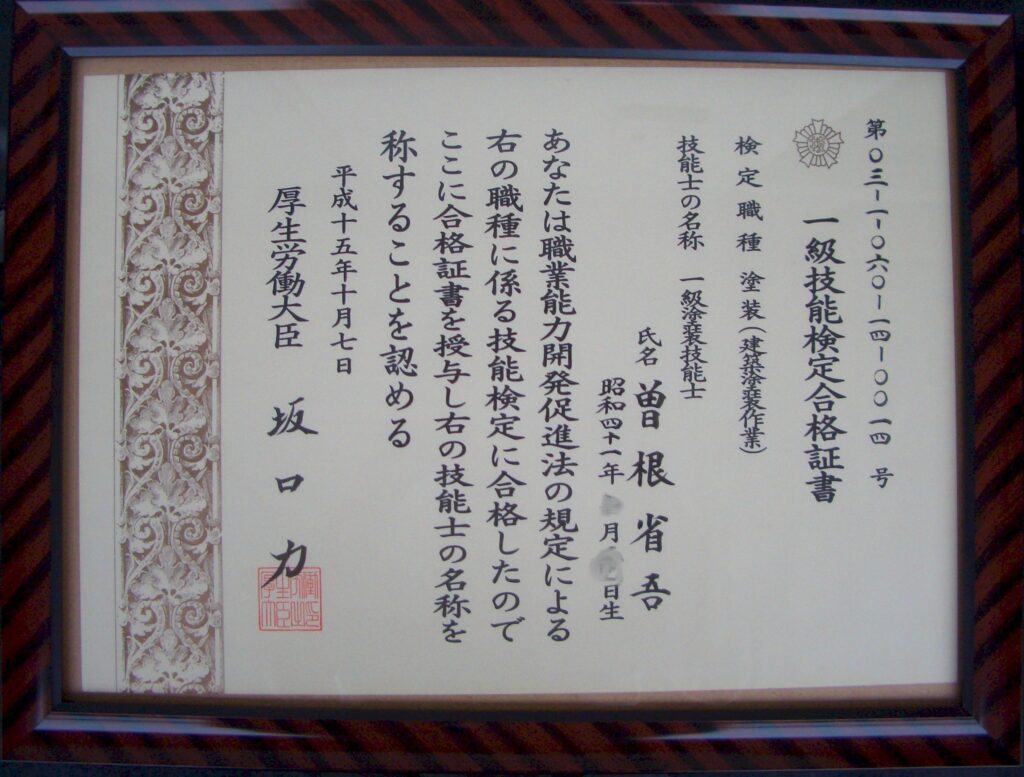 第〇三-一-〇六〇-一四-〇〇一四 号
一級技能検定合格証書
検定職種 塗装(建築塗装作業)
技能士の名称 一級塗装技能士
氏名 曽根省吾
昭和四十一年 月 日生
あなたは職業能力開発促進法の規定による
右の職種に係る技能検定に合格したので
ここに合格証書を授与し右の技能士の名称を
称することを認める
平成十五年十月七日
厚生労働大臣 坂口力